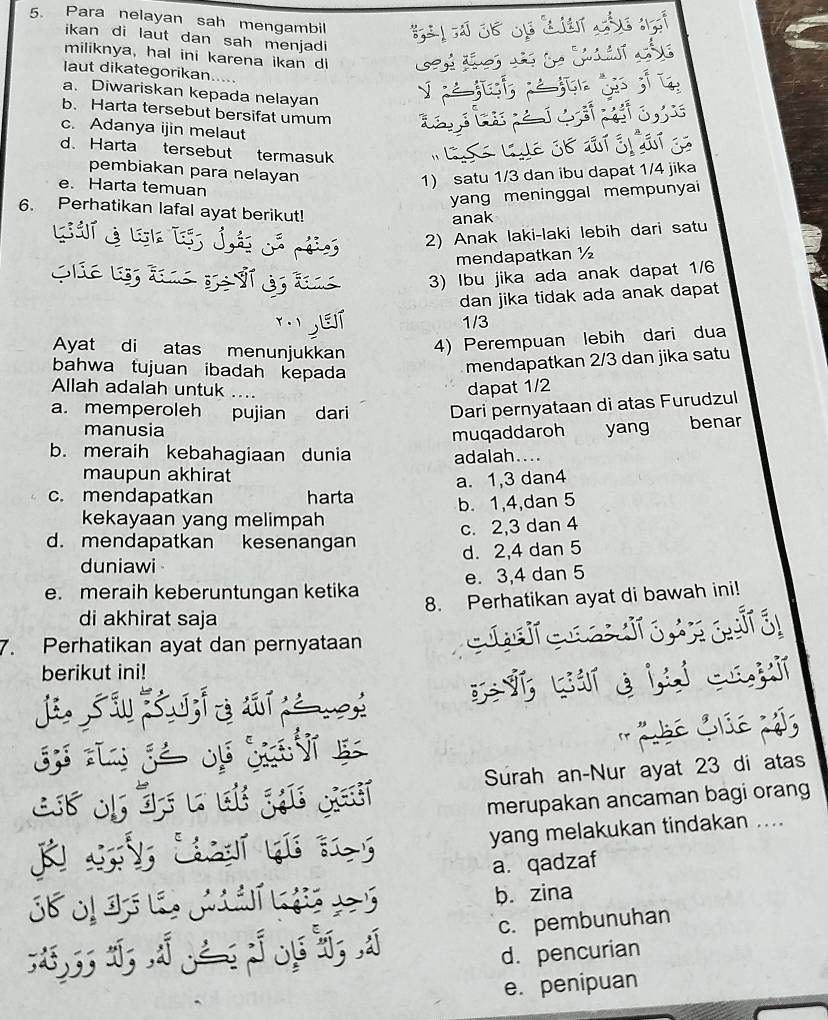 5. Para nelayan sah mengambil
ikan di laut dan sah menjadi
miliknya, hal ini karena ikan di
laut dikategorikan.....
a. Diwariskan kepada nelayan
b. Harta tersebut bersifat umum
c. Adanya ijin melaut
d. Harta tersebut termasuk
pembiakan para nelayan
e. Harta temuan
6. Perhatikan lafal ayat berikut!
وَمِنْهُمْ مَّنْ يَّقُوْلُ رَبَّنَآ اٰتِنَا فِى الدُّنْيَا
حَسَنَةً وَّفِى الْاٰخِرَةِ حَسَنَةً وَّقِنَا عَذَابَ
النَّارِ ٢٠١
Ayat di atas menunjukkan
bahwa tujuan ibadah kepada
Allah adalah untuk ....
a. memperoleh pujian dari
manusia
b. meraih kebahagiaan dunia
maupun akhirat
c. mendapatkan harta
kekayaan yang melimpah
d. mendapatkan kesenangan
duniawi
e. meraih keberuntungan ketika
di akhirat saja
7. Perhatikan ayat dan pernyataan
berikut ini!
يُوْصِيْكُمُ اللّٰهُ فِيْٓ اَوْلَادِكُمْ لِلذَّكَرِ مِثْلُ
حَظِّ الْاُنْثَيَيْنِ ۚ فَاِنْ كُنَّ نِسَاۤءً فَوْقَ
اثْنَتَيْنِ فَلَهُنَّ ثُلُثَا مَا تَرَكَ ۚ وَاِنْ كَانَتْ
وَاحِدَةً فَلَهَا النِّصْفُ ۗ وَلِاَبَوَيْهِ لِكُلِّ
وَاحِدٍ مِّنْهُمَا السُّدُسُ مِمَّا تَرَكَ اِنْ كَانَ
لَهٗ وَلَدٌ ۚ فَاِنْ لَّمْ يَكُنْ لَّهٗ وَلَدٌ وَّوَرِثَهٗٓ
اَبَوٰهُ فَلِاُمِّهِ الثُّلُثُ ۚ فَاِنْ كَانَ لَهٗٓ اِخْوَةٌ
فَلِاُمِّهِ السُّدُسُ مِنْۢ بَعْدِ وَصِيَّةٍ يُّوْصِيْ
بِهَآ اَوْ دَيْنٍ ۗ اٰبَاۤؤُكُمْ وَاَبْنَاۤؤُكُمْ لَا
تَدْرُوْنَ اَيُّهُمْ اَقْرَبُ لَكُمْ نَفْعًا ۗ فَرِيْضَةً
مِّنَ اللّٰهِ ۗ اِنَّ اللّٰهَ كَانَ عَلِيْمًا حَكِيْمًا ١١
1) satu 1/3 dan ibu dapat 1/4 jika
yang meninggal mempunyai
anak
2) Anak laki-laki lebih dari satu
mendapatkan ½
3) Ibu jika ada anak dapat 1/6
dan jika tidak ada anak dapat
1/3
4) Perempuan lebih dari dua
mendapatkan 2/3 dan jika satu
dapat 1/2
Dari pernyataan di atas Furudzul
muqaddaroh yang benar
adalah....
a. 1,3 dan4
b. 1,4,dan 5
c. 2,3 dan 4
d. 2,4 dan 5
e. 3,4 dan 5
8. Perhatikan ayat di bawah ini!
اِنَّ الَّذِيْنَ يَرْمُوْنَ الْمُحْصَنٰتِ الْغٰفِلٰتِ
الْمُؤْمِنٰتِ لُعِنُوْا فِى الدُّنْيَا وَالْاٰخِرَةِ
وَلَهُمْ عَذَابٌ عَظِيْمٌ ٢٣
Surah an-Nur ayat 23 di atas
merupakan ancaman bagi orang
yang melakukan tindakan ....
a. qadzaf
b. zina
c. pembunuhan
d. pencurian
e. penipuan